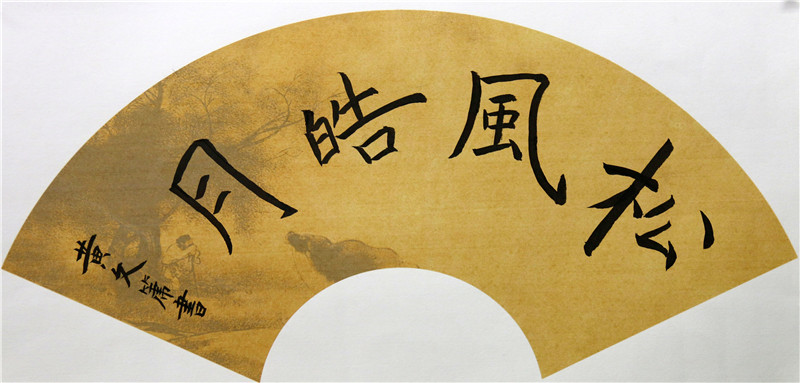 松風皓月
黄文書